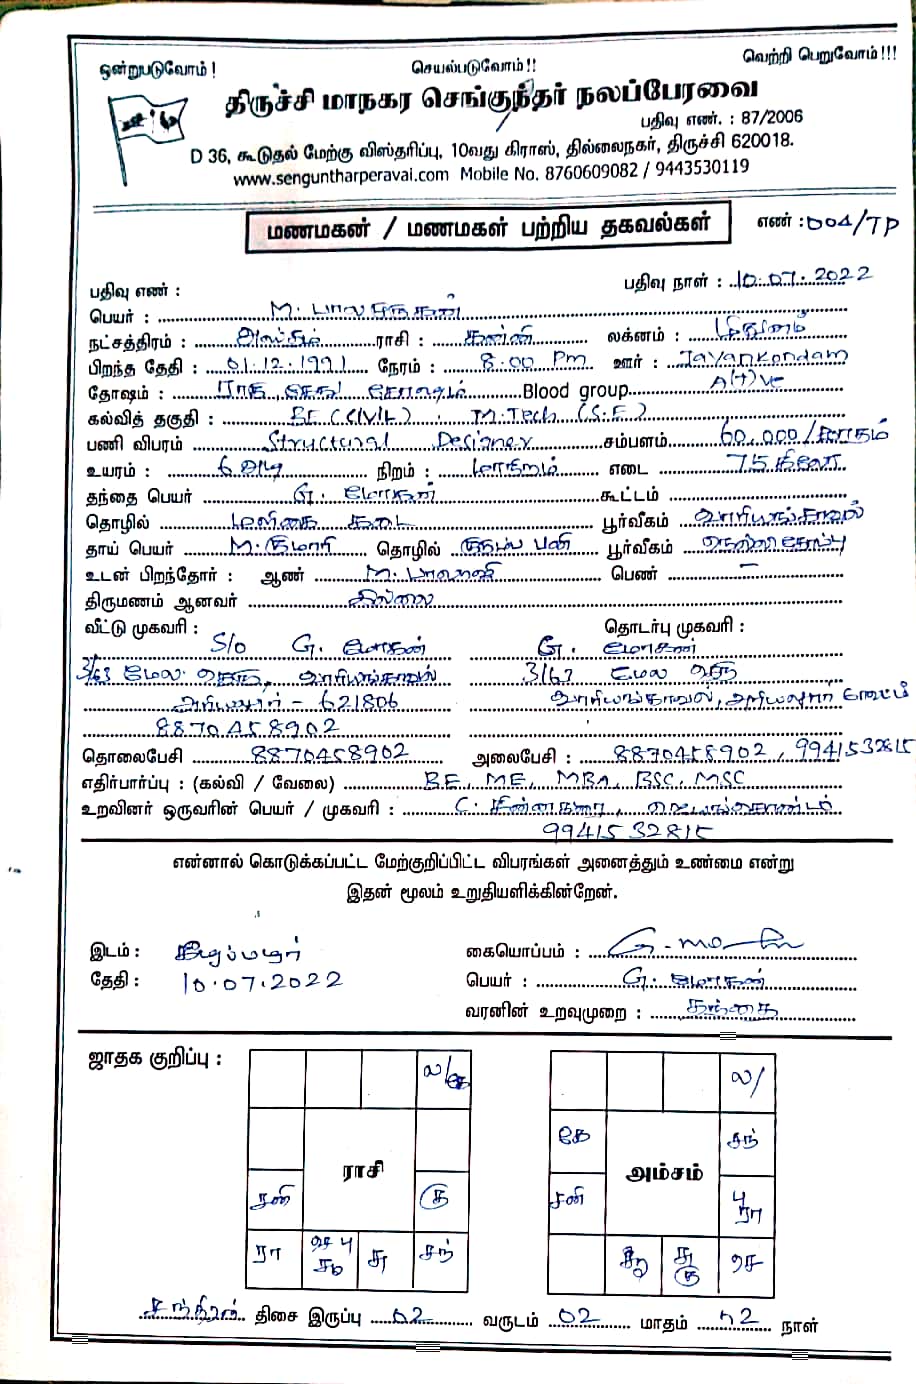 ஒன்றுபடுவோம் ! செயல்படுவோம் !! வெற்றி பெறுவோம் !!!
திருச்சி மாநகர செங்குந்தர் நலப்பேரவை
பதிவு எண். : 87/2006
D 36, கூடுதல் மேற்கு விஸ்தரிப்பு, 10வது கிராஸ், தில்லைநகர், திருச்சி 620018.
www.senguntharperavai.com Mobile No. 8760609082 / 9443530119
மணமகன் / மணமகள் பற்றிய தகவல்கள் எண் : 004/TP
பதிவு எண் : பதிவு நாள் : 10.07.2022
பெயர் : M. பாலமுருகன்
நட்சத்திரம் : அஸ்தம் ராசி : கன்னி லக்னம் : மிதுனம்
பிறந்த தேதி : 01.12.1991 நேரம் : 8:00 Pm ஊர் : Jayankondam
தோஷம் : ராகு, கேது Blood group A(+)ve
கல்வித் தகுதி : BE (CIVIL). M.Tech (S.E)
பணி விபரம் Structural Designer சம்பளம் 60,000/மாதம்
உயரம் : 6 அடி நிறம் : மாநிறம் எடை 75 கிலோ
தந்தை பெயர் G. மோகன் கூட்டம்
தொழில் மளிகை கடை பூர்வீகம்
தாய் பெயர் M. குமாரி தொழில் குடும்ப பணி பூர்வீகம்
உடன் பிறந்தோர் : ஆண் M. பாலாஜி பெண் –
திருமணம் ஆனவர் இல்லை
வீட்டு முகவரி : தொடர்பு முகவரி :
S/o G. மோகன் G. மோகன்
3/63 மேல தெரு, 3/63 மேல தெரு
அரியலூர் - 621806 அரியலூர்
8870458902
தொலைபேசி 8870458902 அலைபேசி : 8870458902, 9941532815
எதிர்பார்ப்பு : (கல்வி / வேலை) BE, ME, MBA, BSC, MSC
உறவினர் ஒருவரின் பெயர் / முகவரி : C. சின்னதுரை, ஜெயங்கொண்டம்
9941532815
என்னால் கொடுக்கப்பட்ட மேற்குறிப்பிட்ட விபரங்கள் அனைத்தும் உண்மை என்று
இதன் மூலம் உறுதியளிக்கின்றேன்.
இடம் : கையொப்பம் :
தேதி : 10.07.2022 பெயர் : G. மோகன்
வரனின் உறவுமுறை : தந்தை
ஜாதக குறிப்பு :
ல/கே ல/
கே சந்
ராசி அம்சம்
சனி கு சனி பு ரா
ரா செ பு சு சந் சு கு செ
சந்திரன் திசை இருப்பு 02 வருடம் 02 மாதம் 12 நாள்